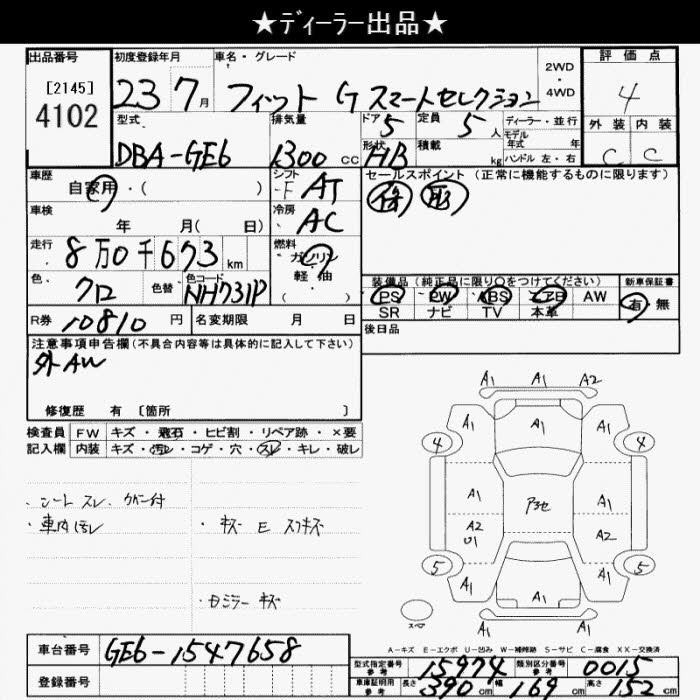 ★ディーラー出品★
出品番号 初度登録年月 車名・グレード 2WD・4WD 評価点
[2145]
4102
23 7月 フィット G スマートセレクション 4
型式 排気量 ドア 定員 ディーラー・並行 外装 内装
5 5人 モデル年式 年
DBA-GE6 1300cc 形状 積載 C C
HB kg ハンドル 左・右
車歴 シフト セールスポイント(正常に機能するものに限ります)
自家用・( ) F AT
車検 冷房
年 月( 日) AC
走行 燃料
8万0千673km ガソリン
軽・油
( )
色 色替 色コード 装備品(純正品に限り○をつけてください) 新車保証書
クロ NH731P PS PW ABS エアB AW 有 無
SR ナビ TV 本革
R券 10810円 名変期限 月 日 後日品
注意事項申告欄(不具合内容等は具体的に記入して下さい)
外AW
修復歴 有 [箇所 ]
検査員 FW キズ・飛石・ヒビ割・リペア跡・×要
記入欄 内装 キズ・汚レ・コゲ・穴・スレ・キレ・破レ
・シート スレ、
・車内 汚レ ・キズ E スリキズ
・Bミラー キズ
A1 A1 A2
A1 A1 A1
4 4
A1 A1
A2 U1 A2
5 5
A1 A1 A1
A1 A1 A1
スペア
A-キズ E-エクボ U-凹み W-補修跡 S-サビ C-腐食 XX-交換済
車台番号 GE6-1547658
型式指定番号 参考 15974 類別区分番号 参考 0015
登録番号
車庫証明用 参考 長さ 390cm 幅 169cm 高さ 152cm